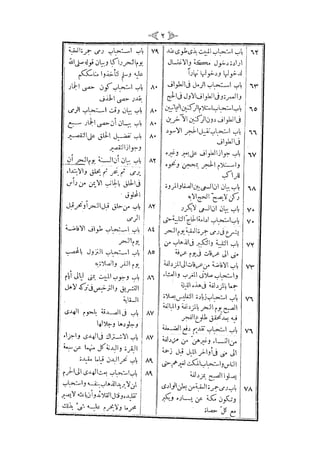 ﴿ ٢ ﴾
٦٢ باب استحباب المبيت بذى طوى عند
ارادة دخول مكة والاغتسال
لدخولها ودخولها نهارا
٦٣ باب استحباب الرمل فى الطواف
والعمرة وفى الطواف الاول فى الحج
٦٥ باب استحباب استلام الركنين اليمانيين
فى الطواف دون الركنين الآخرين
٦٦ باب استحباب تقبيل الحجر الاسود
فى الطواف
٦٧ باب جواز الطواف على بعير وغيره
واستلام الحجر بمحجن ونحوه
للراكب
٦٨ باب بيان ان السعى بين الصفا والمروة
ركن لا يصح الحج الا به
٧٠ باب بيان ان السعى لا يكرر
٧٠ باب استحباب ادامة الحاج التلبية حتى
يشرع فى رمى جمرة العقبة يوم النحر
٧٢ باب التلبية والتكبير فى الذهاب من
منى الى عرفات فى يوم عرفة
٧٣ باب الافاضة من عرفات الى المزدلفة
واستحباب صلاتى المغرب والعشاء
جمعا بالمزدلفة فى هذه الليلة
٧٦ باب استحباب زيادة التغليس بصلاة
الصبح يوم النحر بالمزدلفة والمبالغة
فيه بعد تحقق طلوع الفجر
٧٦ باب استحباب تقديم دفع الضعفة
من النساء وغيرهن من مزدلفة
الى منى فى اواخر الليل قبل زحمة
الناس واستحباب المكث لغيرهم حتى
يصلوا الصبح بمزدلفة
٧٨ باب رمى جمرة العقبة من بطن الوادى
وتكون مكة عن يساره ويكبر
مع كل حصاة
٧٩ باب استحباب رمى جمرة العقبة
يوم النحر راكبا وبيان قوله صلى الله
عليه وسلم لتأخذوا مناسككم
٨٠ باب استحباب كون حصى الجمار
بقدر حصى الخذف
٨٠ باب بيان وقت استحباب الرمى
٨٠ باب بيان أن حصى الجمار سبع
٨٠ باب تفضيل الحلق على التقصير
وجواز التقصير
٨٢ باب بيان أن السنة يوم النحر أن
يرمى ثم ينحر ثم يحلق والابتداء
فى الحلق بالجانب الايمن من رأس
المحلوق
٨٢ باب من حلق قبل النحر أو نحر قبل
الرمى
٨٤ باب استحباب طواف الافاضة
يوم النحر
٨٥ باب استحباب النزول بالمحصب
يوم النفر والصلاة به
٨٦ باب وجوب المبيت بمنى ليالى أيام
التشريق والترخيص فى تركه لاهل
السقاية
٨٧ باب فى الصدقة بلحوم الهدى
وجلودها وجلالها
٨٧ باب الاشتراك فى الهدى واجزاء
البقرة والبدنة كل منهما عن سبعة
٨٩ باب نحر البدن قياما مقيدة
٨٩ باب استحباب بعث الهدى الى الحرم
لمن لا يريد الذهاب بنفسه واستحباب
تقليده وفتل القلائد وأن باعثه لا يصير
محرما ولا يحرم عليه شئ بذلك